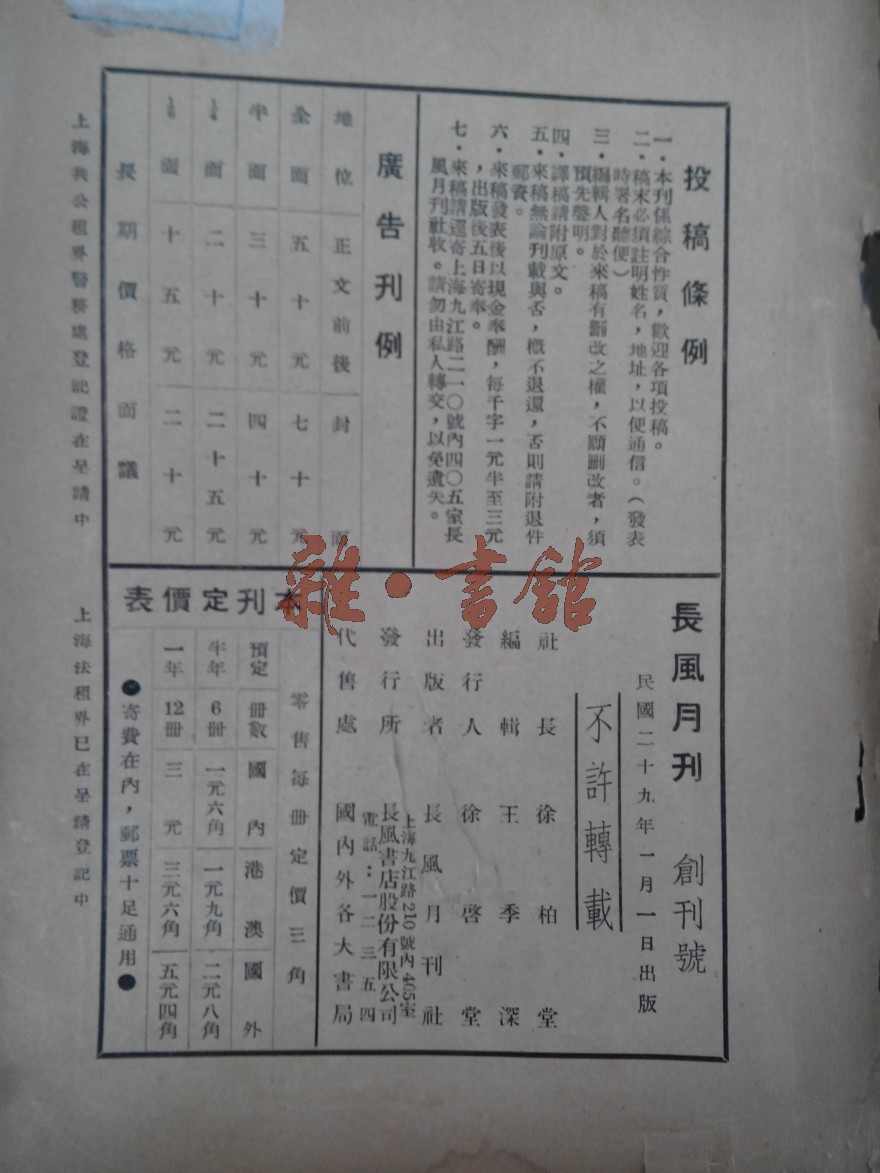 投稿條例
一．本刊係綜合性質，歡迎各項投稿。
二．稿末必須註明姓名，地址，以便通信。（發表
時署名聽便）
三．編輯人對於來稿有刪改之權，不願刪改者，須
預先聲明。
四．譯稿請附原文。
五．來稿無論刊載與否，概不退還，否則請附退件
郵資。
六．來稿發表後以現金奉酬，每千字一元半至三元
，出版後五日寄奉。
七．來稿請逕寄上海九江路二一〇號內四〇五室長
風月刊社收。請勿由私人轉交，以免遺失。
廣告刊例
地位 正文前後 封面
全面 五十元 七十元
半面 三十元 四十元
1/4面 二十元 二十五元
1/8面 十五元 二十元
長期價格面議
長風月刊 創刊號
民國二十九年一月一日出版
不許轉載
社長 徐柏堂
編輯 王季深
發行人 徐啓堂
出版者 長風月刊社
上海九江路210號內405室
發行所 長風書店股份有限公司
電話：一二三五四
代售處 國內外各大書局
本刊定價表
零售每冊定價三角
預定 冊數 國內 港澳 國外
半年 6冊 一元六角 一元九角 二元八角
一年 12冊 三元 三元六角 五元四角
●寄費在內，郵票十足通用●
上海共公租界警務處登記證在呈請中 上海法租界已在呈請登記中
雜·書館